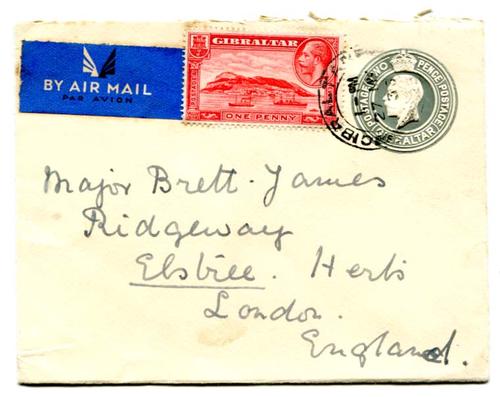 BY AIR MAIL
PAR AVION
GIBRALTAR
POSTAGE &
ONE PENNY
GIBRALTAR
POSTAGE TWO PENCE POSTAGE
GIBRALTAR
Major Brett-James
Ridgeway
Elstree. Herts
London.
England.